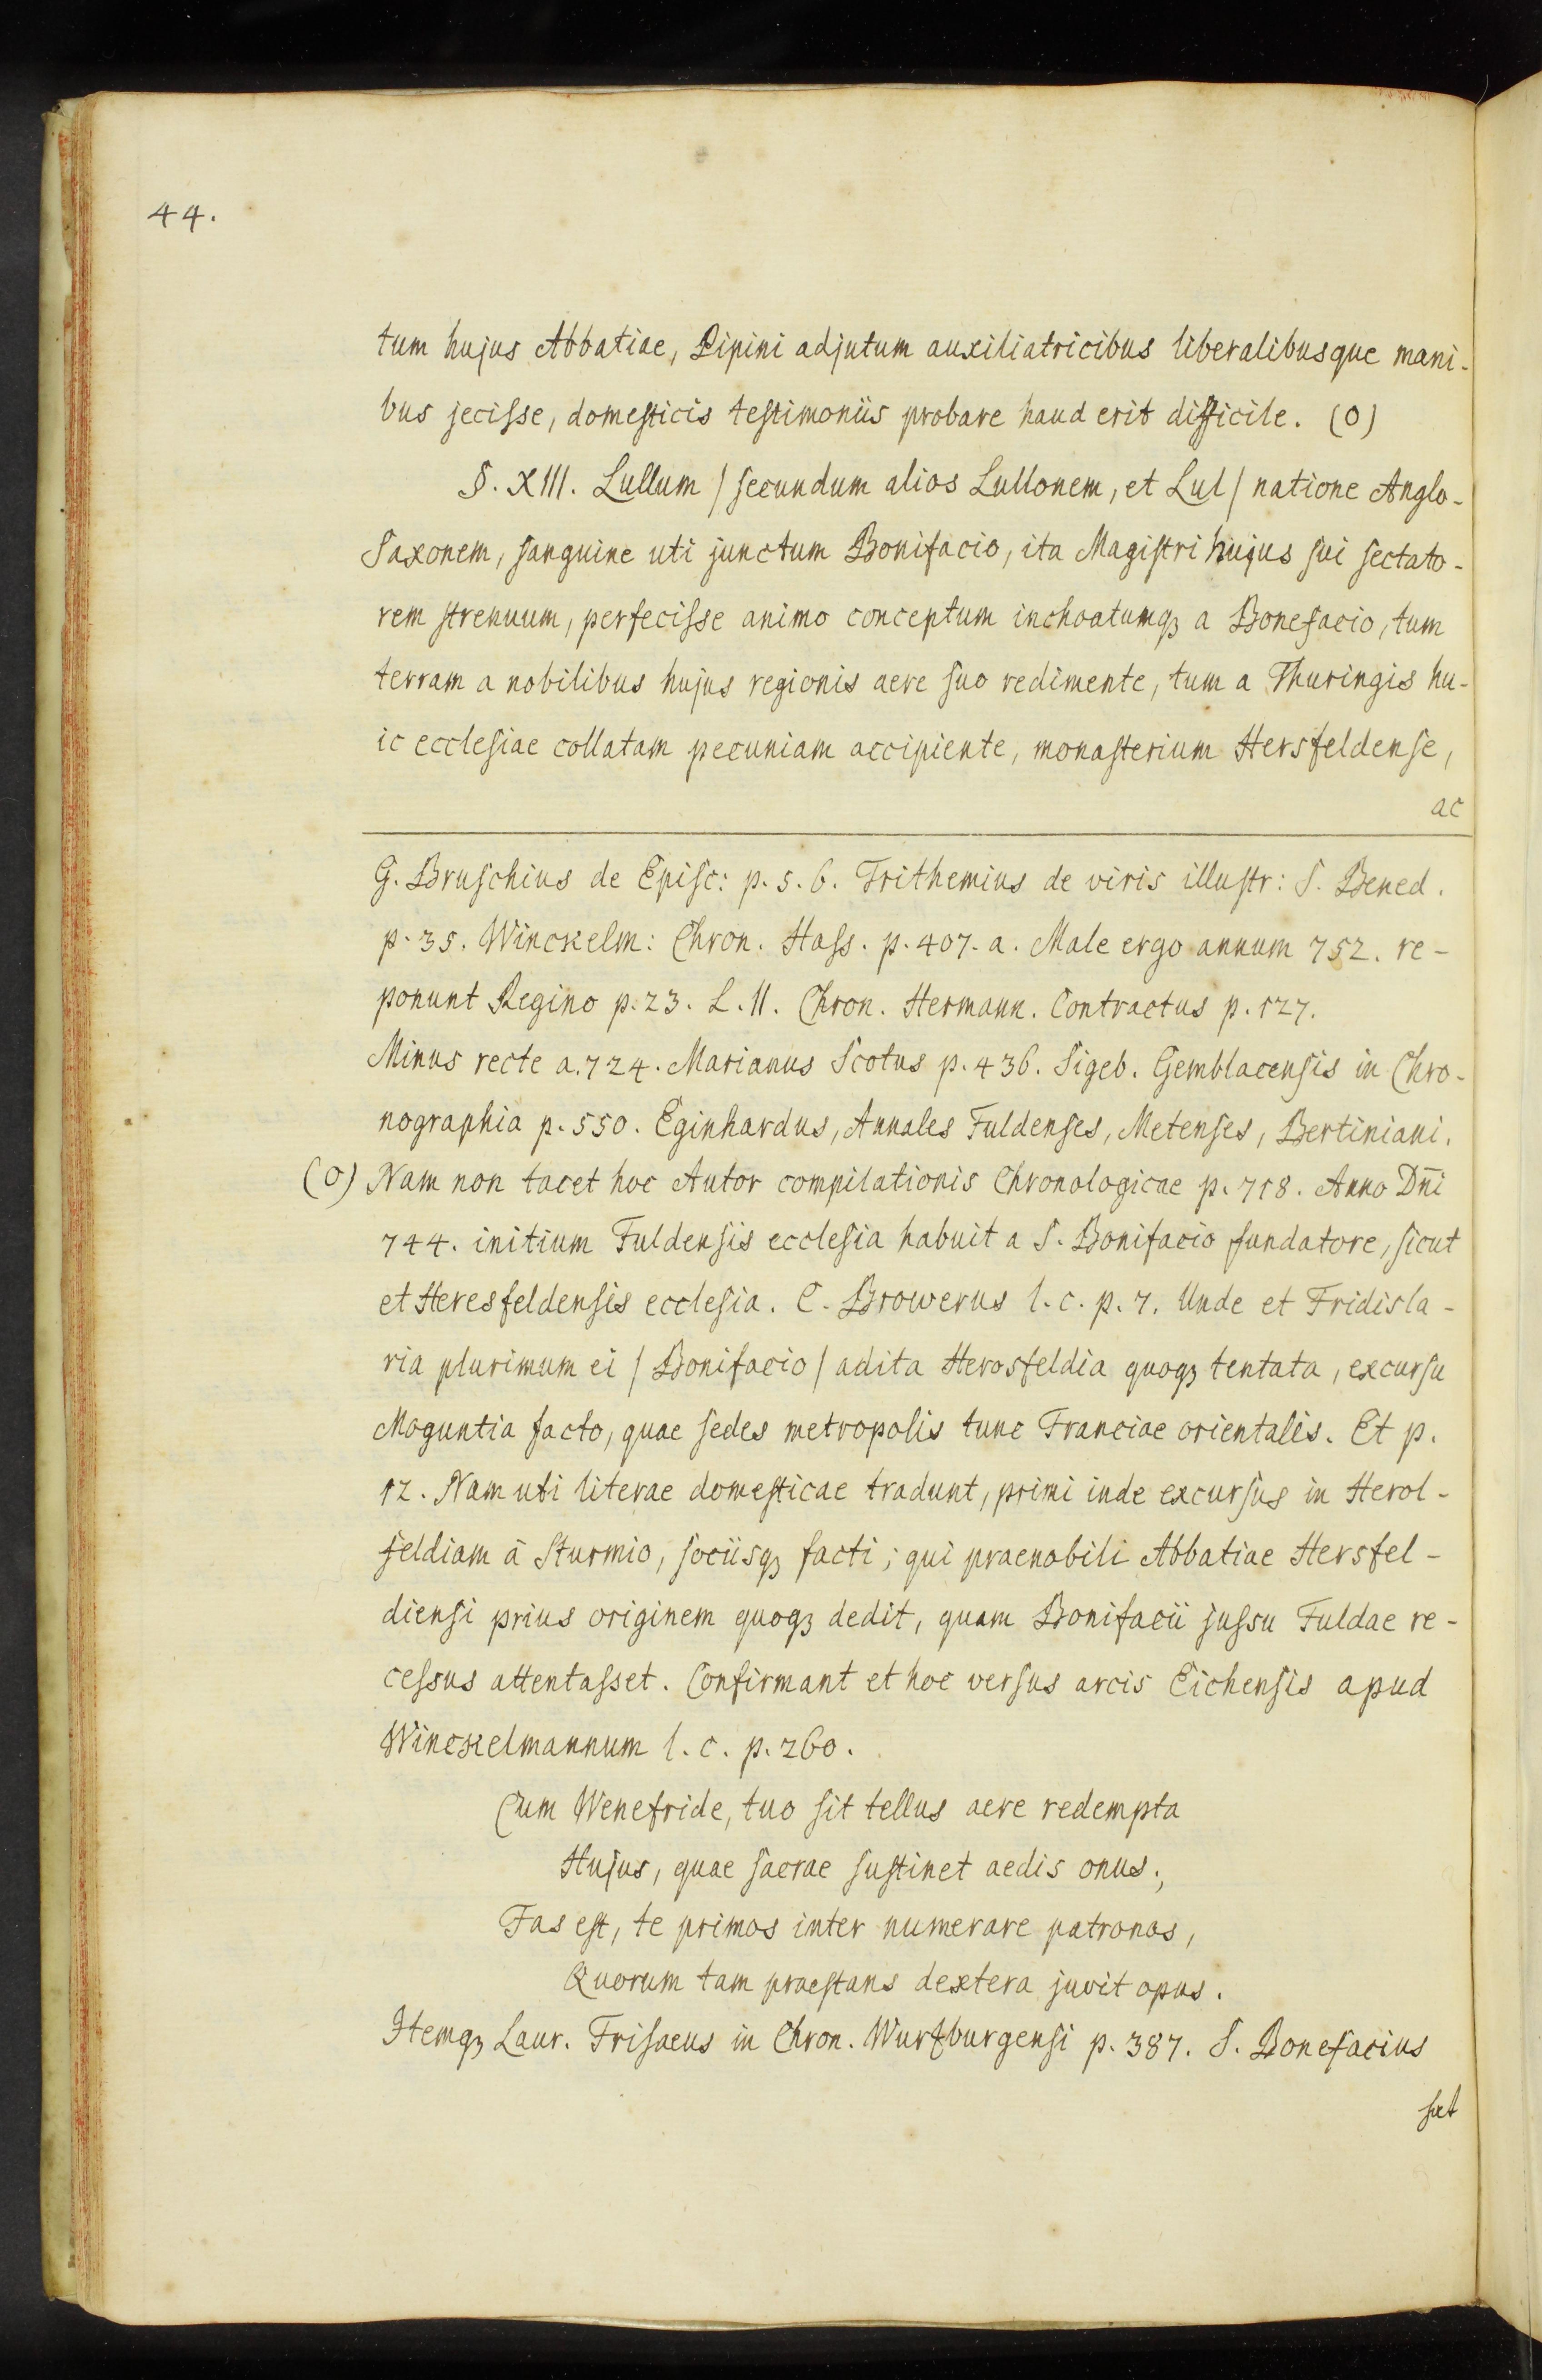 44.
tum hujus Abbatiae, Pipini adjutum auxiliatricibus liberalibusque mani-
bus jecisse, domesticis testimoniis probare haud erit difficile. (o)
§. XIII. Lullum / secundum alios Lullonem, et Lul / natione Anglo-
Saxonem, sanguine uti junctum Bonifacio, ita Magistri hujus sui sectato-
rem strenuum, perfecisse animo conceptum inchoatumqꝫ a Bonefacio, tum
terram a nobilibus hujus regionis aere suo redimente, tum a Thuringis hu-
ic ecclesiae collatam pecuniam accipiente, monasterium Hersfeldense,
ac
G. Bruschius de Episc: p. 5. 6. Trithemius de viris illustr: S. Bened.
p. 35. Winckelm: Chron. Hass. p. 407. a. Male ergo annum 752. re-
ponunt Regino p. 23. L. II. Chron. Hermann. Contractus p. 127.
Minus recte a. 724. Marianus Scotus p. 436. Sigeb. Gemblacensis in Chro-
nographia p. 550. Eginhardus, Annales Fuldenses, Metenses, Bertiniani.
(o) Nam non tacet hoc Autor compilationis Chronologicae p. 718. Anno Dn̄i
744. initium Fuldensis ecclesia habuit a S. Bonifacio fundatore, sicut
et Heresfeldensis ecclesia. C. Browerus l. c. p. 7. Unde et Fridisla-
ria plurimum ei / Bonifacio / adita Herosfeldia quoqꝫ tentata, excursu
Moguntia facto, quae sedes metropolis tunc Franciae orientalis. Et p.
12. Nam uti literae domesticae tradunt, primi inde excursus in Herol-
feldiam â Sturmio, sociisqꝫ facti; qui praenobili Abbatiae Hersfel-
diensi prius originem quoqꝫ dedit, quam Bonifacii jussu Fuldae re-
cessus attentasset. Confirmant et hoc versus arcis Eichensis apud
Winckelmannum l. c. p. 260.
Cum Wenefride, tuo sit tellus aere redempta
Hujus, quae sacrae sustinet aedis onus;
Fas est, te primos inter numerare patronos,
Quorum tam praestans dextera juvit opus.
Itemqꝫ Laur. Frisaeus in Chron. Wurtzburgensi p. 387. S. Bonefacius